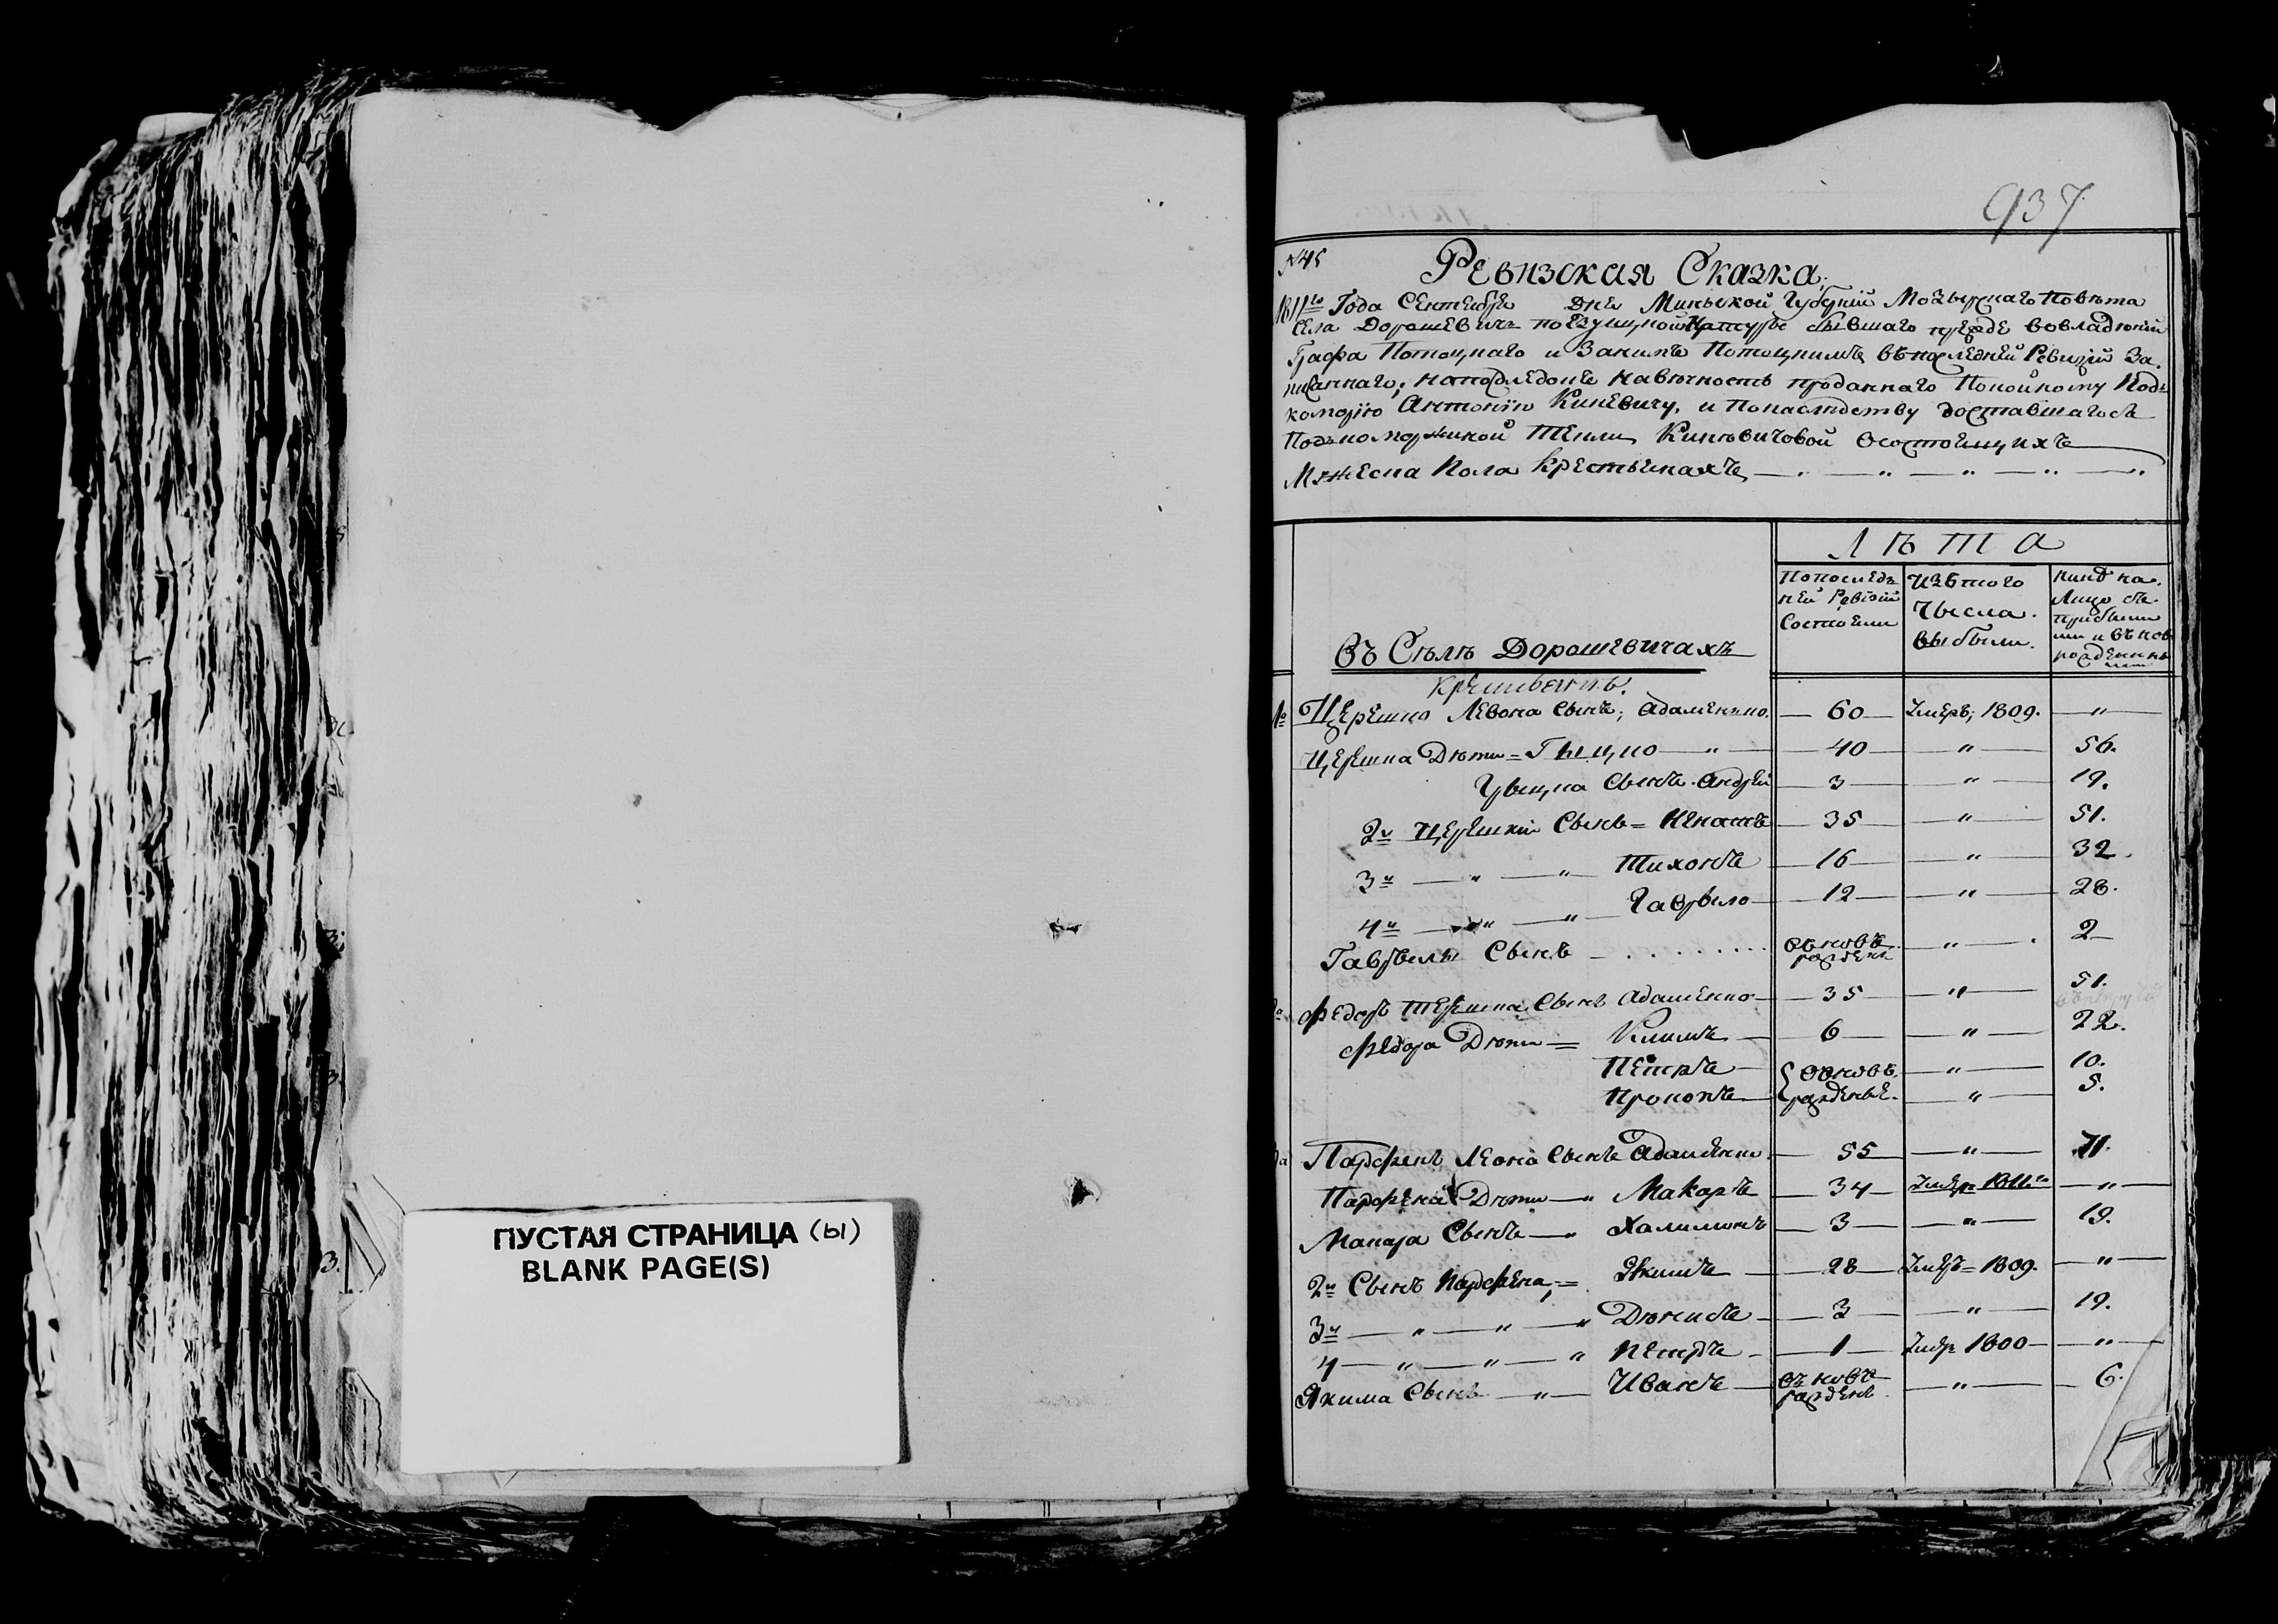 ПУСТАЯ СТРАНИЦА (ы)
BLANK PAGE(S)
937
№45
Ревизская Сказка.
1811го Года Сентебре дне Минской Губернiи Мозырскаго Повѣта
Села Дорошевичъ бывшаго прежде вовладѣнiи
Графа Потоцкаго и Закимъ Потоцкимъ въ последней Ревизiи За-
писаннаго, напоследокъ навечность проданнаго Покойному Под-
коморiю Антонiю Киневичу, и Понаследству доставшагосъ
Подкоморжиной Текли Киневичовой Осостоещихъ
Мужеска Пола Крестьенахъ
Лѣта
Въ Селѣ Дорошевичахъ
Попослед-
ней Ревизiи
Состоели
Изътого
Чысла
выбыли.
нинѣ на
Лицо съ
прибыли
ми и въновъ
рожденны
ми
1а Церешко Левона Сынъ, Адаменко. — 60 — Умеръ, 1809. — "
Церешка Дѣти = Грыцко — " — 40 — " — 56.
Грыцка Сынъ Андрей — 3 — " — 19.
2й Церешки Сынъ = Игнатъ — 35 — " — 51.
3й — " — " — Тихонъ — 16 — " — 32.
4й — " — " — Гаврыло — 12 — " — 28.
Гаврылы Сынъ — . . . . . . . въновъ рожденъ — " — 2
Федоръ Терешка Сынъ Адаменко — 35 — " — 51.
Федора Дѣти = Климъ — 6 — " — 22.
Петръ — въновъ — " — 10.
Прокопъ — рожденые. — " — 5.
Парфенъ Леона Сынъ Адаменко — 55 — " — 71.
Парфена Дѣти — " Макаръ — 34 — Умеръ 1811го — "
Макара Сынъ — " Халимонъ — 3 — " — 19.
2й Сынъ Парфена, = Якимъ — 28 — Умеръ = 1809. — "
3й — " — " — " Дѣнисъ — 3 — " — 19.
4 — " — " — " Петръ — 1 — Умеръ 1800 — "
Якима Сынъ — " — Иванъ — въновъ рожденъ — " — 6.